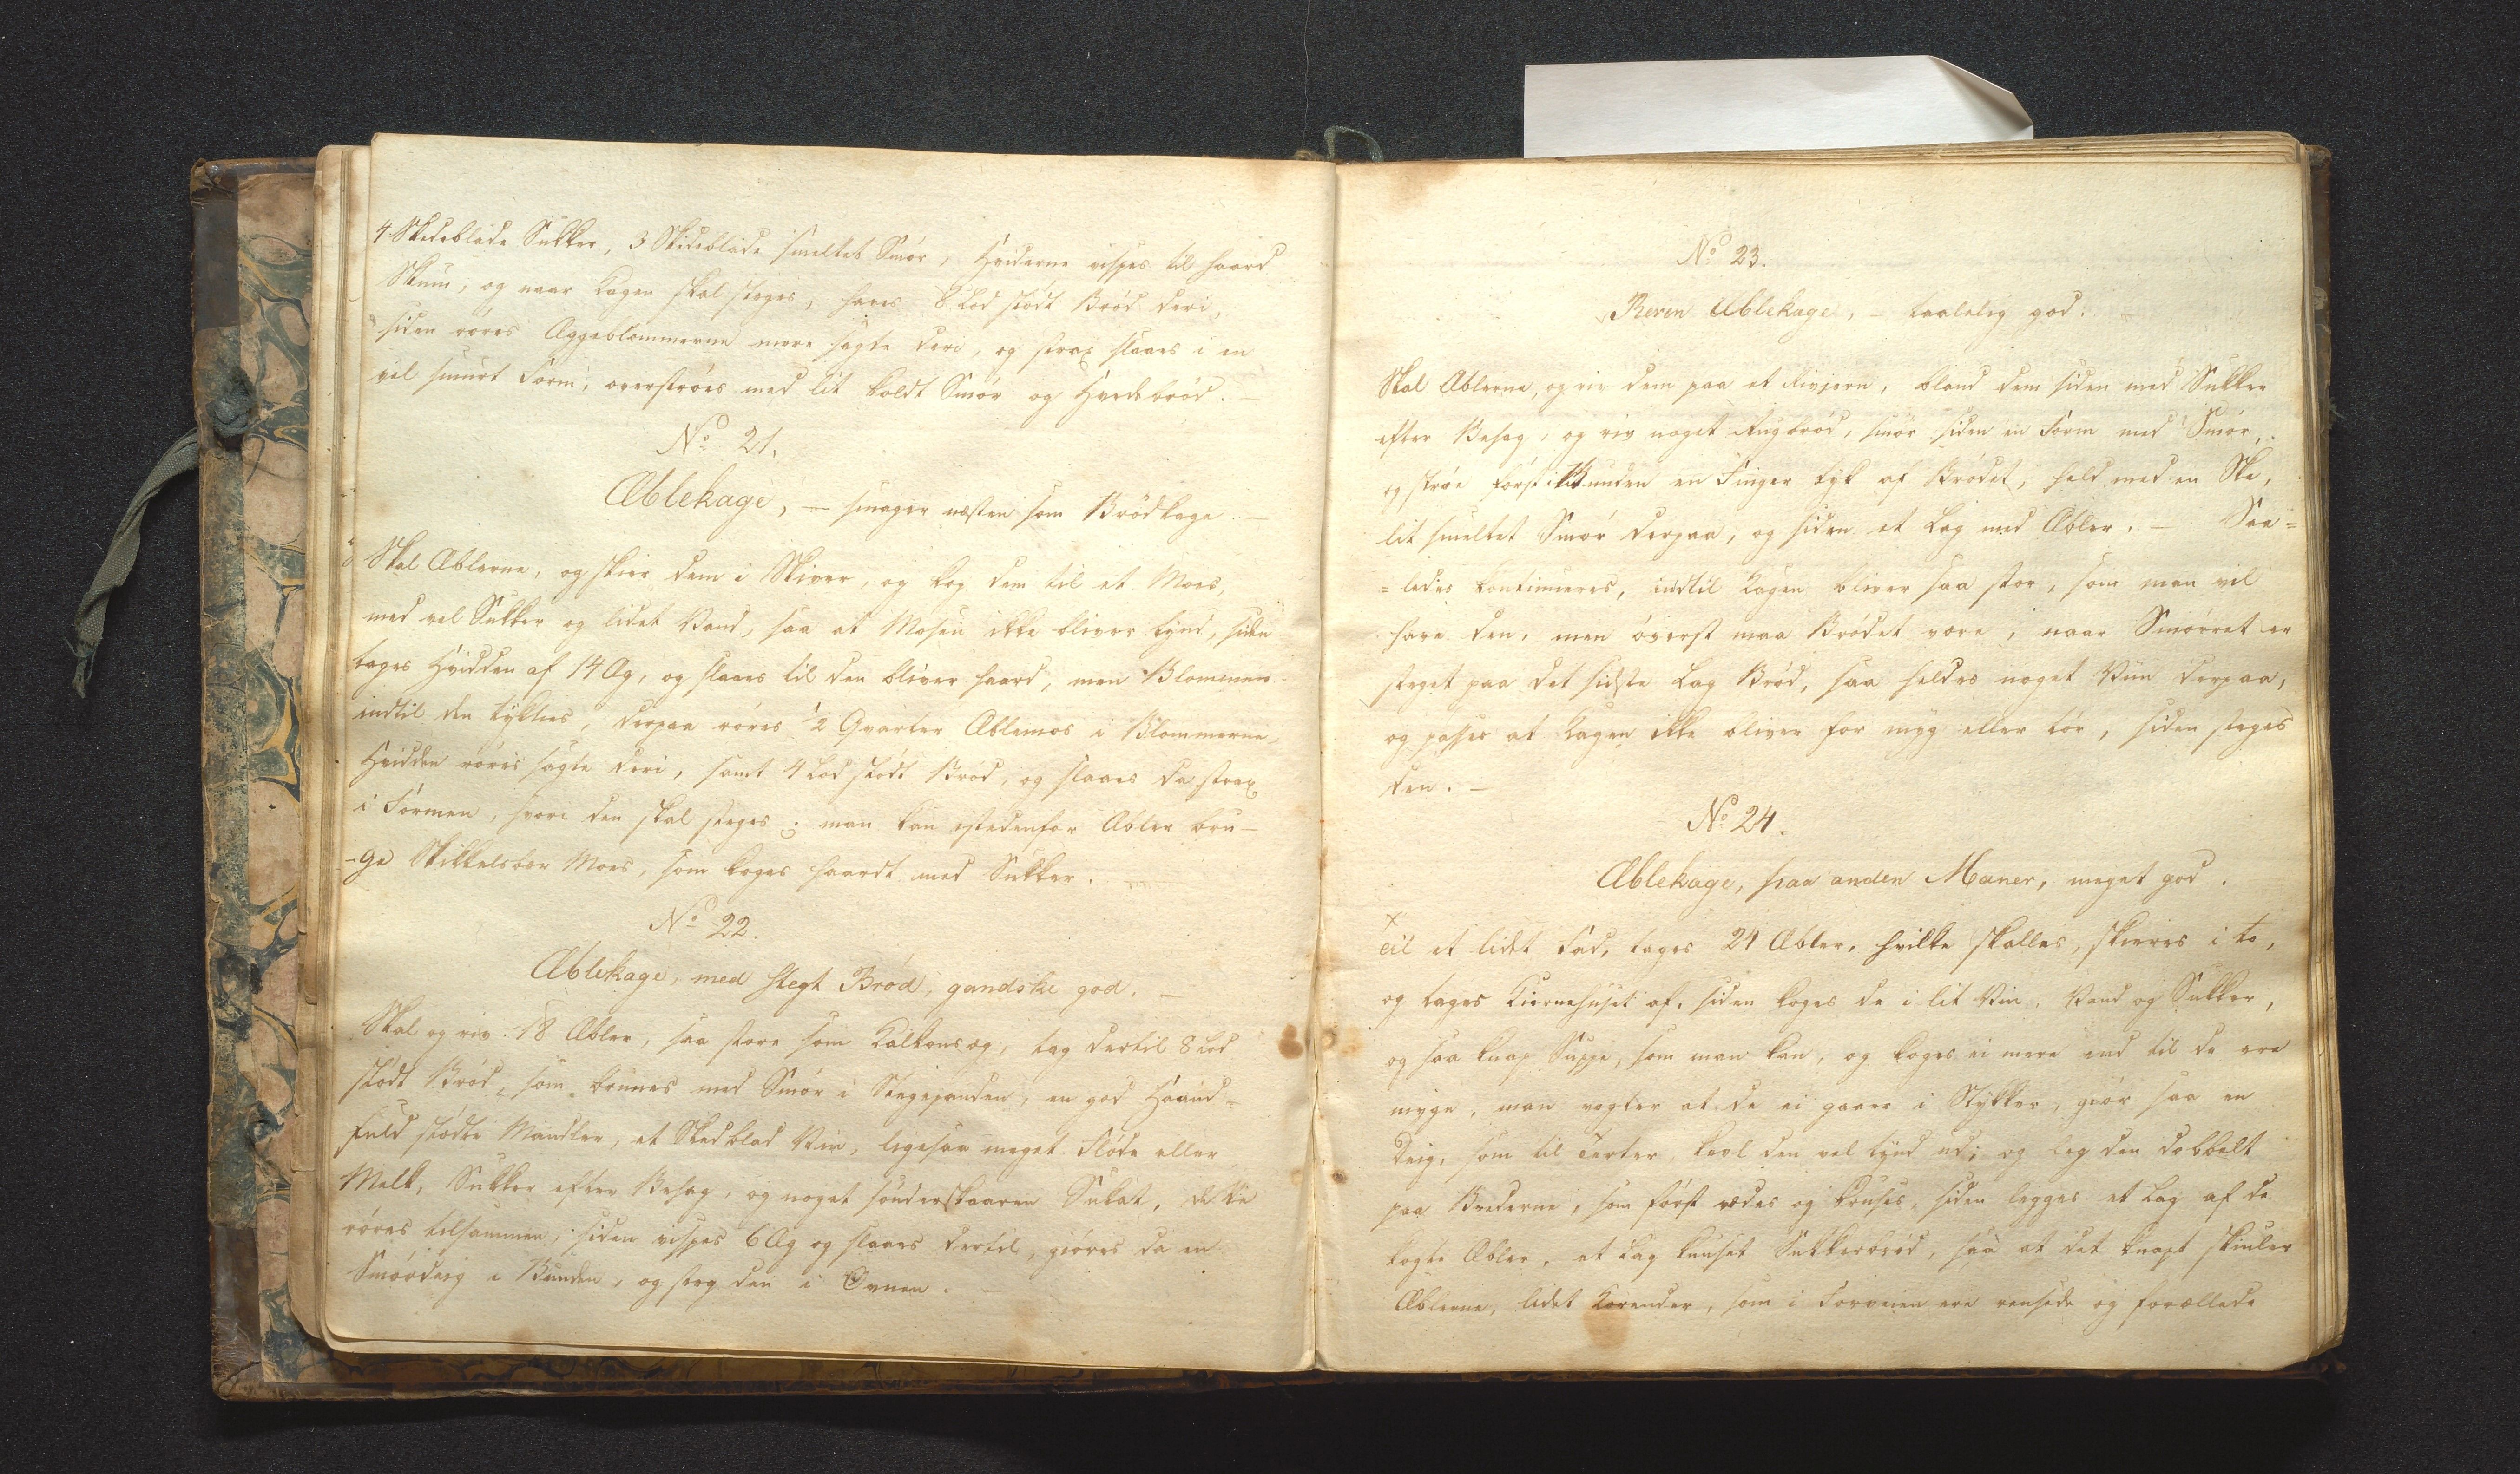 4 Skedeblade Sukker, 3 Skedeblade smeltet Smör, Hviderne vispes til haard
Skum, og naar Kagen skal steges, haves 8 Lod stödt Bröd deri,
siden röres Æggeblommerne mere sagte deri, og strax slaaes i en
vel smurt Form, overströes med lit koldt Smör og Hvedebröd. —
No 21.
Æblekage, — smager næsten som Brödkage. —
Skal Æblerne, og skier dem i Skiver, og kog dem til et Moes,
med vel Sukker og lidet Vand, saa at Mosen ikke bliver tynd, siden
tages Hvidden af 14 Æg, og slaaes til den bliver haard, men Blommen
indtil den tyknes, derpaa röres 1/2 Qvarter Æblemos i Blommerne,
Hvidden röres sagte deri, samt 4 Lod stödt Bröd, og slaaes da strax
i Formen, hvori den skal steges; man kan istedenfor Æbler bru-
-ge Stikkelsbær Moes, som koges haardt med Sukker.
No 22.
Æblekage, med stegt Bröd, gandske god. —
Skal og riv 18 Æbler, saa store som Kalkonsæg, tag dertil 8 Lod
stödt Bröd, som brunes med Smör i Stegepanden, en god Haand=
fuld stödte Mandler, et Skedblad Vin, ligesaa meget Flöde eller
Melk, Sukker efter Behag, og noget sönderskaaren Sukat, dette
röres tilsammen, siden vispes 6 Æg og slaaes dertil, giöres da en
Smördeig i Bunden, og steg den i Ovnen.
No 23.
Reven Æblekage, — taalelig god.
Skal Æblerne, og riv dem paa et Rivjern, bland dem siden med Sukker
efter Behag, og riv noget Rugbröd, smör siden en Form med Smör,
og ströe först i Bunden en Finger tyk af Brödet, held med en Ske,
lit smeltet Smör derpaa, og siden et Lag med Æbler. — Saa=
=ledes kontinueres, indtil Kagen bliver saa stor, som man vil
have den, men överst maa Brödet være, naar Smörret er
steget paa det sidste Lag Bröd, saa heldes noget Viin derpaa,
og passes at Kagen ikke bliver for myg eller tör, siden steges
den. —
No 24.
Æblekage, paa anden Maner, meget god.
x
Til et lidet Fad, tages 24 Æbler, hvilke skalles, skieres i to,
og tages Kiernehuset af, siden koges de i lit Vin, Vand og Sukker,
og saa knap Suppe, som man kan, og koges ei mere end til de ere
myge, man vogter at de ei gaaer i Stykker, giör saa en
Deig, som til Terter, kevl den vel tynd ud; og leg den dobbelt
paa Brederne, som först vædes og kruses, siden legges et Lag af de
kogte Æbler, et Lag knuset Sukkerbröd, saa at det knapt skiuler
Æblerne, lidet Korender, som i Forveien ere rensede og forvellede